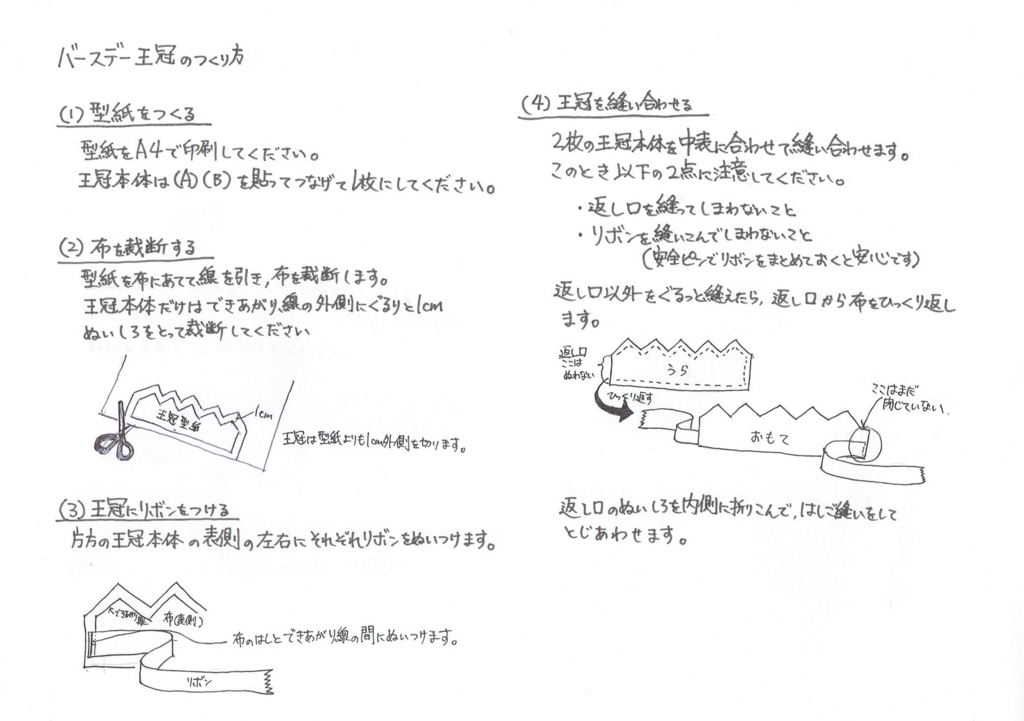 バースデー王冠のつくり方
(1) 型紙をつくる
型紙をA4で印刷してください。
王冠本体は(A)(B)を貼ってつなげて1枚にしてください。
(2) 布を裁断する
型紙を布にあてて線を引き,布を裁断します。
王冠本体だけはできあがり線の外側にぐるりと1cm
ぬいしろをとって裁断してください
王冠型紙
1cm
王冠は型紙よりも1cm外側を切ります。
(3) 王冠にリボンをつける
片方の王冠本体の表側の左右にそれぞれリボンをぬいつけます。
できあがり線
布(表側)
布のはしとできあがり線の間にぬいつけます。
リボン
(4) 王冠を縫い合わせる
2枚の王冠本体を中表に合わせて縫い合わせます。
このとき以下の2点に注意してください。
・返し口を縫ってしまわないこと
・リボンを縫いこんでしまわないこと
(安全ピンでリボンをまとめておくと安心です)
返し口以外をぐるっと縫えたら,返し口から布をひっくり返し
ます。
返し口
ここは
ぬわない
うら
ひっくり返す
ここはまだ
閉じていない.
おもて
返し口のぬいしろを内側に折りこんで,はしご縫いをして
とじあわせます。